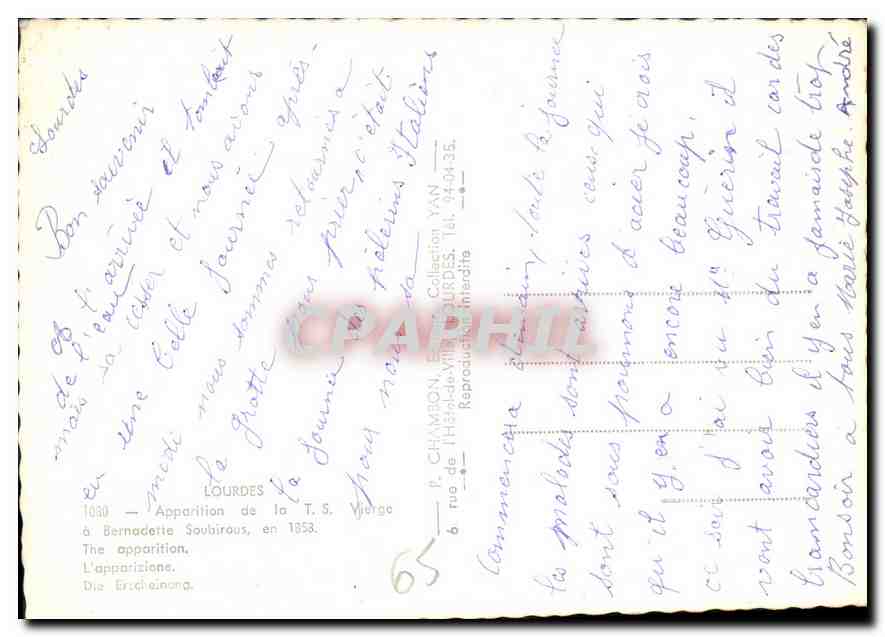 Lourdes
Bon souvenir
de l'arrivée et tombait
de l'eau
mais sa cesser et nous avions
en une belle journée après-
midi nous sommes retournés a
la grotte pour prier, c'était
la journée des pèlerins Italiens
pour nous sa
commencera demain, toute la journée
les malades sont arrivées ceux qui
sont sous poumons d'acier je crois
qu'il y en a encore beaucoup,
ce soir j'ai vu Mr Guérin et
vont avoir bien du travail car des
brancardiers il y en a jamais de trop
Bonsoir à tous Marie Josephe André
P. CHAMBON, Collection YAN
6 rue de l'Hôtel-de-Ville, LOURDES. Tél. 94-04-35.
Reproduction interdite
CPAPHIL
LOURDES
1080 — Apparition de la T. S. Vierge
à Bernadette Soubirous, en 1858.
The apparition.
L'apparizione.
Die Erscheinong.
65